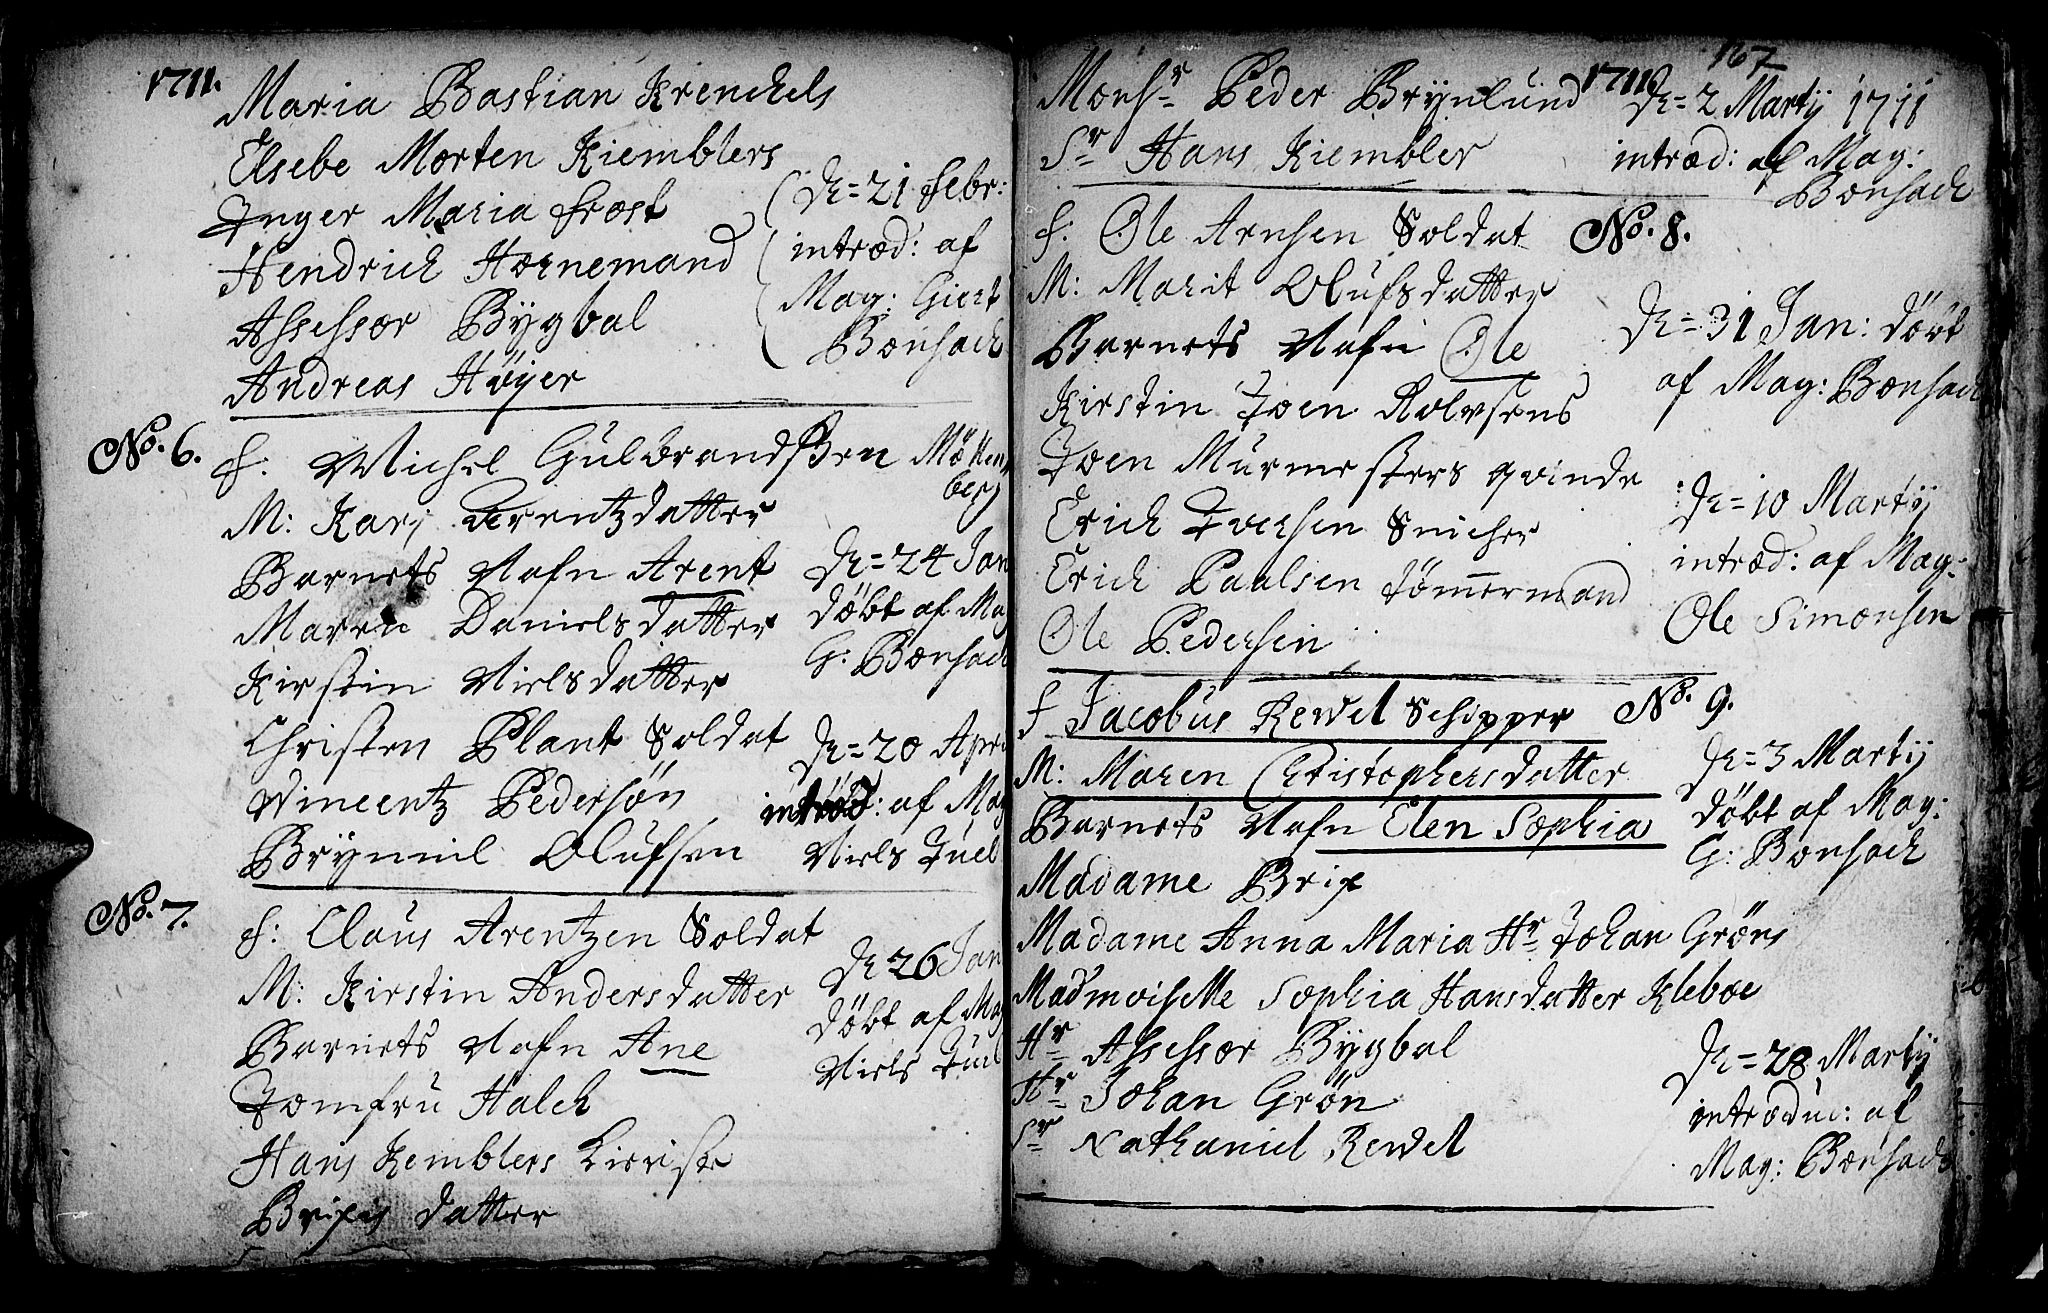 1711.
Maria Bastian Krenckels
Elsebe Morten Kiemblers
Inger Maria Frost
Hendrich Hornemand
Assessor Bygbal
Andreas Höyer
D= 21 Febr:
introd: af
Mag: Giert
Bonsach
No. 6.
F: Michel Gulbrandssen Möllen
berg
M: Karj Arentzdatter
Barnets Nafn Arent
Maren Danielsdatter
Kirstin Nielsdatter
Christen Plant Soldat
Vincentz Pedersön
Brynnil Olufsen
D= 24 Jan
döbt af Mag
G: Bonsach
D= 20 Apri
introd: af Mag
Niels Juel
No. 7.
F: Claus Arentzen Soldat
M: Kirstin Andersdatter
Barnets Nafn Ane
Jomfru Halck
Hans Kemblers
Brixes datter
D 26 Jan
döbt af Mag
Niels Juel
167
1711.
Monsr Peder Brynlund
Sr Hans Kiembler
D= 2 Martij 1711
introd: af Mag:
Bonsach
No. 8.
F: Ole Arnsen Soldat
M: Marit Olufsdatter
Barnets Nafn Ole
Kirstin Joen Rolvsens
Joen Murmesters qvinde
Erich Iversen Snicher
Erich Paalsen Tömermand
Ole Pedersen
D= 31 Jan: döbt
af Mag: Bonsach
D= 10 Martij
introd: af Mag:
Ole Simonsen
No. 9.
F Jacobus Rewel Schipper
M: Maren Christophersdatter
Barnets Nafn Elen Sophia
Madame Brix
Madame Anna Maria Hr Johan Gröns
Madmoiselle Sophia Hansdatter Kleboe
Hr Assessor Bygbal
Hr Johan Grön
Sr Nathaniel Rewel
D= 3 Martij
döbt af Mag:
G: Bonsach
D= 28 Martij
introduc: af
Mag: Bonsach